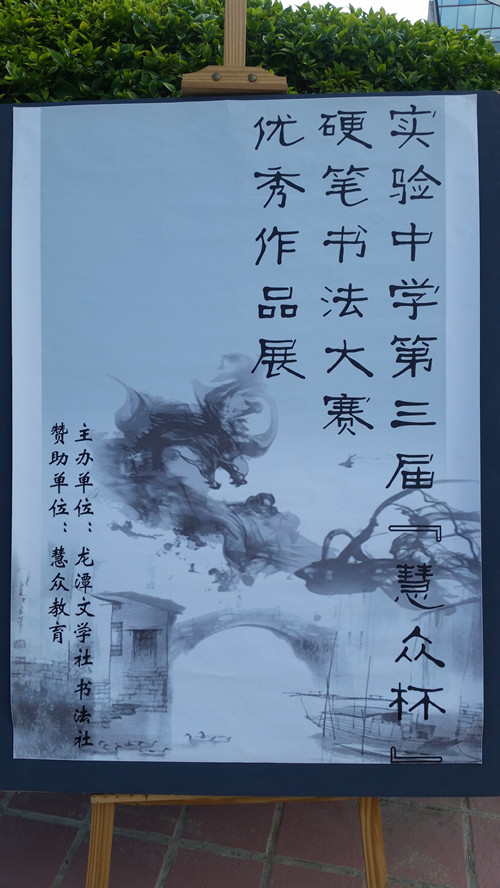 实验中学第三届『慧众杯』
硬笔书法大赛
优秀作品展
主办单位：龙潭文学社 书法社
赞助单位：慧众教育